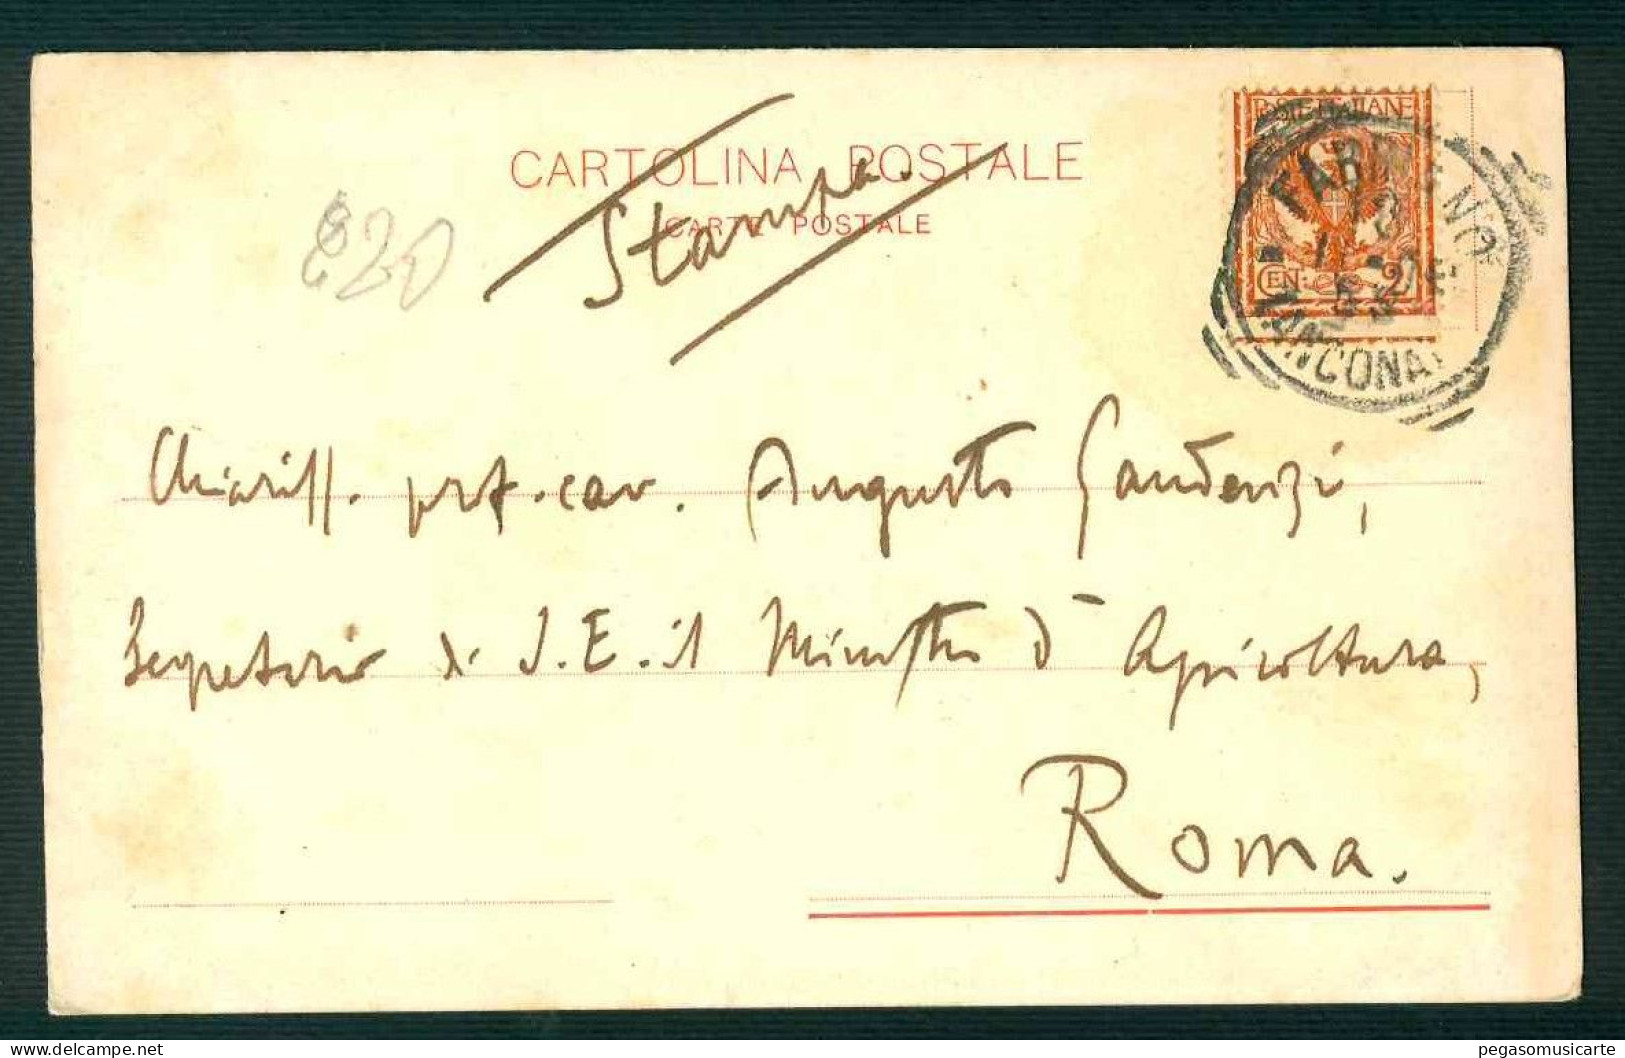 CARTOLINA POSTALE
CARTE POSTALE
Stampa.
€20
POSTE ITALIANE
CEN: 2
(ANCONA)
Chiariss. prof. cav. Augusto Gaudenzi,
Segretario di S. E. il Ministro d'Agricoltura,
Roma.
www.delcampe.net
pegasomusicarte